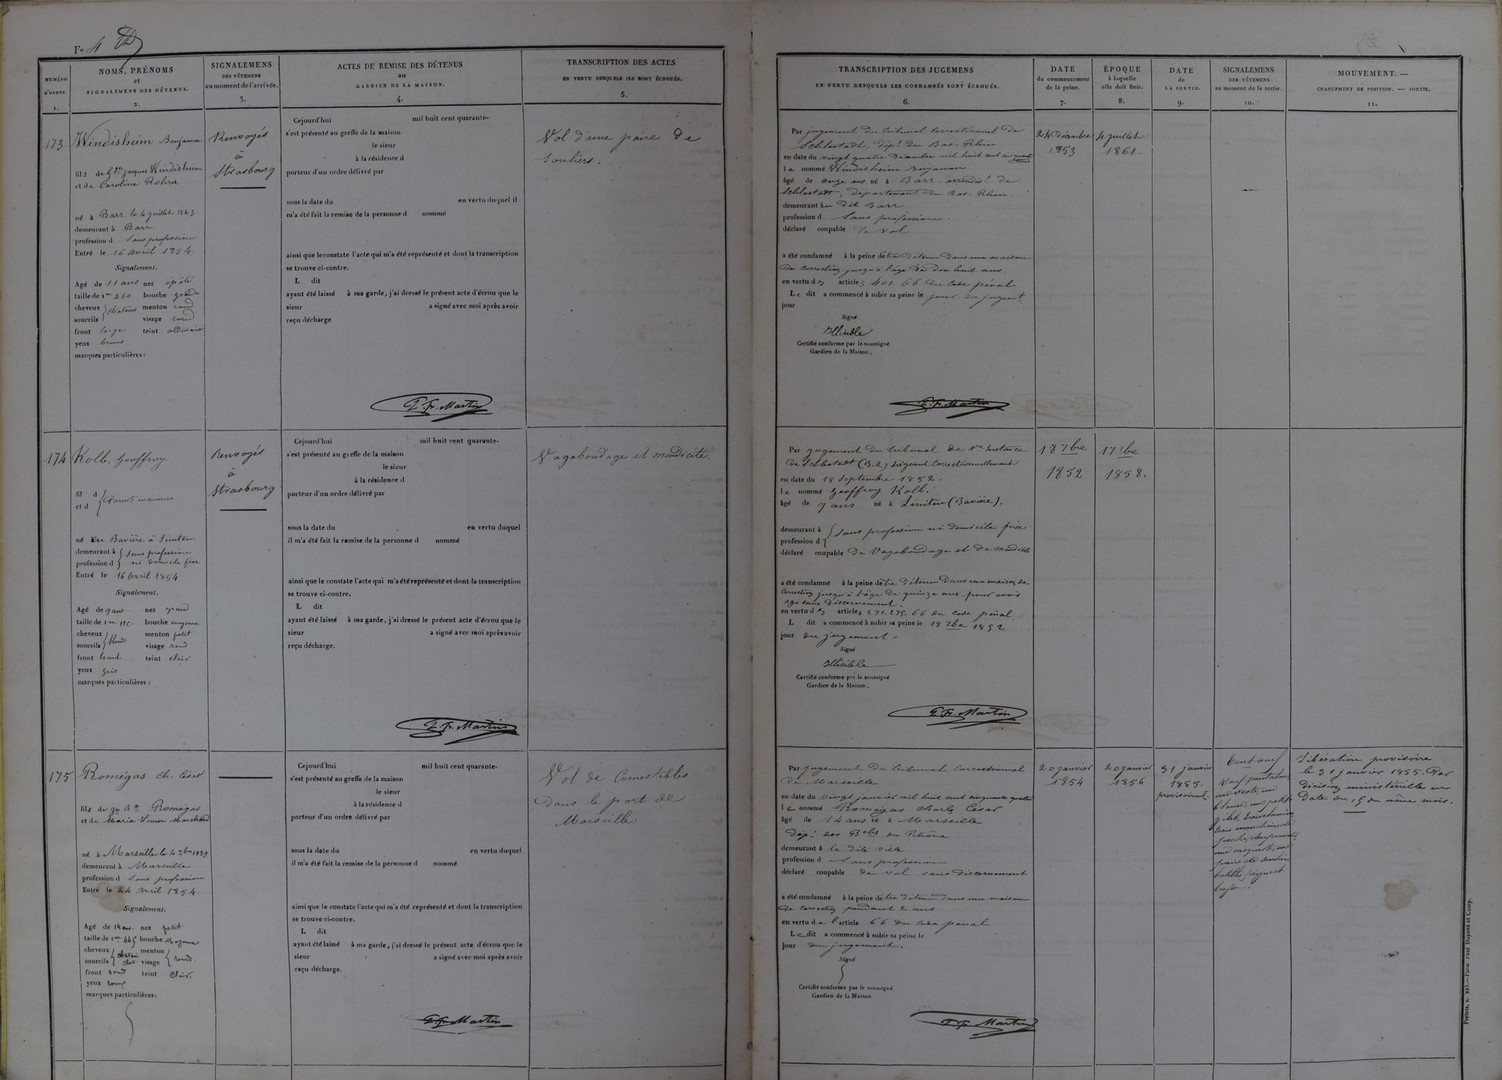 Fo 4
NUMÉRO D'ORDRE 1.
NOMS, PRÉNOMS et SIGNALEMENS DES DÉTENUS. 2.
SIGNALEMENS DES VÊTEMENS au moment de l'arrivée. 3.
ACTES DE REMISE DES DÉTENUS au GARDIEN DE LA MAISON. 4.
TRANSCRIPTION DES ACTES EN VERTU DESQUELS ILS SONT ÉCROUÉS. 5.
TRANSCRIPTION DES JUGEMENS EN VERTU DESQUELS LES CONDAMNÉS SONT ÉCROUÉS. 6.
DATE du commencement de la peine. 7.
ÉPOQUE à laquelle elle doit finir. 8.
DATE de LA SORTIE. 9.
SIGNALEMENS DES VÊTEMENS au moment de la sortie. 10.
MOUVEMENT. — CHANGEMENT DE POSITION. — SORTIE. 11.
173
Windisheim Benjamin
fils de jacques Windisheim
et de Caroline Rohru
né à Barr le 4 juillet 1843
demeurant à Barr
profession d Sans profession
Entré le 16 avril 1854.
Signalement.
Agé de 11 ans nez épaté
taille de 1m 260 bouche grande
cheveux châtains menton rond
sourcils visage rond
front large teint ordinaire
yeux bruns
marques particulières :
Renvoyés
à
Strasbourg
Cejourd'hui mil huit cent quarante-
s'est présenté au greffe de la maison
le sieur
à la résidence d
porteur d'un ordre délivré par
sous la date du en vertu duquel il
m'a été fait la remise de la personne d nommé
ainsi que le constate l'acte qui m'a été représenté et dont la transcription
se trouve ci-contre.
L dit
ayant été laissé à ma garde, j'ai dressé le présent acte d'écrou que le
sieur a signé avec moi après avoir
reçu décharge
P. Fr. Martin
Vol d'une paire de
souliers.
Par jugement du tribunal correctionnel de
Schlestadt, dépt du Bas-Rhin
en date du vingt quatre décembre mil huit cent cinquante trois
le nommé Windisheim Benjamin
âgé de onze ans né à Barr, arrondt de
Schlestadt, département du Bas-Rhin
demeurant au dit Barr
profession d Sans profession.
déclaré coupable de vol
a été condamné à la peine d'être détenu dans une maison
de correction jusqu'à l'âge de dix huit ans.
en vertu des articles 401. 66 du Code pénal
Le dit a commencé à subir sa peine le jour du jugement
jour
Signé
Illisible
Certifié conforme par le soussigné
Gardien de la Maison,
P. Fr. Martin
24 décembre
1853
4 juillet
1861
174
Kolb, Geoffroy
fil d
et d
Parents inconnus
né en Bavière à Liniten
demeurant à
profession d
sans profession
ni domicile fixe
Entré le 16 avril 1854
Signalement.
Agé de 9 ans nez grand
taille de 1m bouche moyenne
cheveux blonds menton petit
sourcils visage rond
front haut teint clair
yeux gris
marques particulières :
Renvoyés
à
Strasbourg
Cejourd'hui mil huit cent quarante-
s'est présenté au greffe de la maison
le sieur
à la résidence d
porteur d'un ordre délivré par
sous la date du en vertu duquel
il m'a été fait la remise de la personne d nommé
ainsi que le constate l'acte qui m'a été représenté et dont la transcription
se trouve ci-contre.
L dit
ayant été laissé à ma garde, j'ai dressé le présent acte d'écrou que le
sieur a signé avec moi après avoir
reçu décharge.
P. Fr. Martin
Vagabondage et mendicité.
Par jugement du tribunal de 1re Instance
de Schlestadt (B.R.) siégeant correctionnellement
en date du 18 septembre 1852.
le nommé Geoffroy Kolb.
âgé de 9 ans né à Liniten (Bavière).
demeurant à
profession d
sans profession ni domicile fixe
déclaré coupable de Vagabondage et de mendicité
a été condamné à la peine d'être détenu dans une maison de
correction jusqu'à l'âge de quinze ans pour avoir
agi sans discernement.
en vertu des articles 271. 275. 66 du Code pénal.
L dit a commencé à subir sa peine le 18 7bre 1852
jour du jugement.
Signé
Illisible
Certifié conforme par le soussigné
Gardien de la Maison,
P. Fr. Martin
18 7bre
1852
17 7bre
1858.
175
Romégas Ch. César
fils de Jn Bte Romégas
et de Marie
né à Marseille le 1839
demeurant à Marseille
profession d Sans profession
Entré le 24 avril 1854.
Signalement.
Agé de 14 ans. nez petit
taille de 1m 445 bouche moyenne
cheveux menton
sourcils visage rond.
front rond teint clair.
yeux roux
marques particulières :
Cejourd'hui mil huit cent quarante-
s'est présenté au greffe de la maison
le sieur
à la résidence d
porteur d'un ordre délivré par
sous la date du en vertu duquel
il m'a été fait la remise de la personne d nommé
ainsi que le constate l'acte qui m'a été représenté et dont la transcription
se trouve ci-contre.
L dit
ayant été laissé à ma garde, j'ai dressé le présent acte d'écrou que le
sieur a signé avec moi après avoir
reçu décharge.
P. Fr. Martin
Vol de Comestibles
dans le port de
Marseille
Par jugement du tribunal correctionnel
de Marseille
en date du vingt janvier mil huit cent cinquante quatre
le nommé Romégas Charles César
âgé de 14 ans né à Marseille
dépt des Bches du Rhône
demeurant à la dite ville
profession d Sans profession
déclaré coupable de vol sans discernement
a été condamné à la peine d'être détenu dans une maison
de correction pendant 2 ans
en vertu de l'article 66 du Code pénal
Le dit a commencé à subir sa peine le
jour du jugement.
Signé
Certifié conforme par le soussigné
Gardien de la Maison
P. Fr. Martin
20 janvier
1854
20 janvier
1856
31 janvier
1855.
provisoiremt
Libération provisoire
le 31 janvier 1855. Par
décision ministérielle en
date du 15 du même mois.